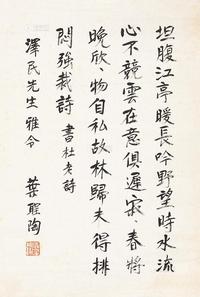 坦腹江亭暖長吟野望時水流
心不競雲在意俱遲寂〻春將
晚欣〻物自私故林歸未得排
悶強裁詩 書杜老詩
澤民先生雅令
葉聖陶